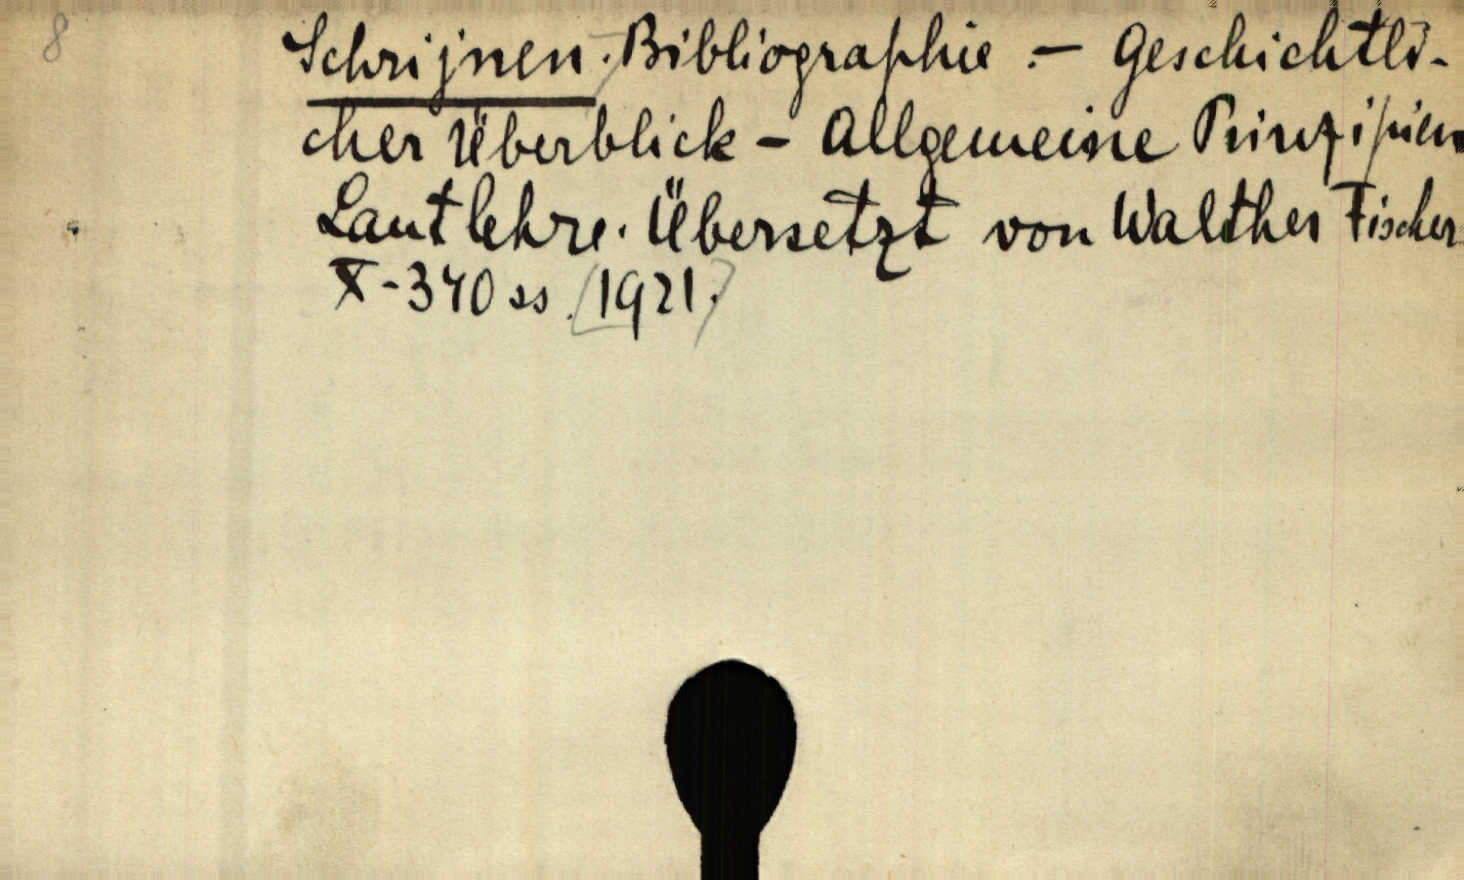 8
Schrijnen. Bibliographie. - Geschichtli-
cher Überblick - Allgemeine Prinzipien
Lautlehre. Übersetzt von Walther Fischer
X-340 ss. (1921.)